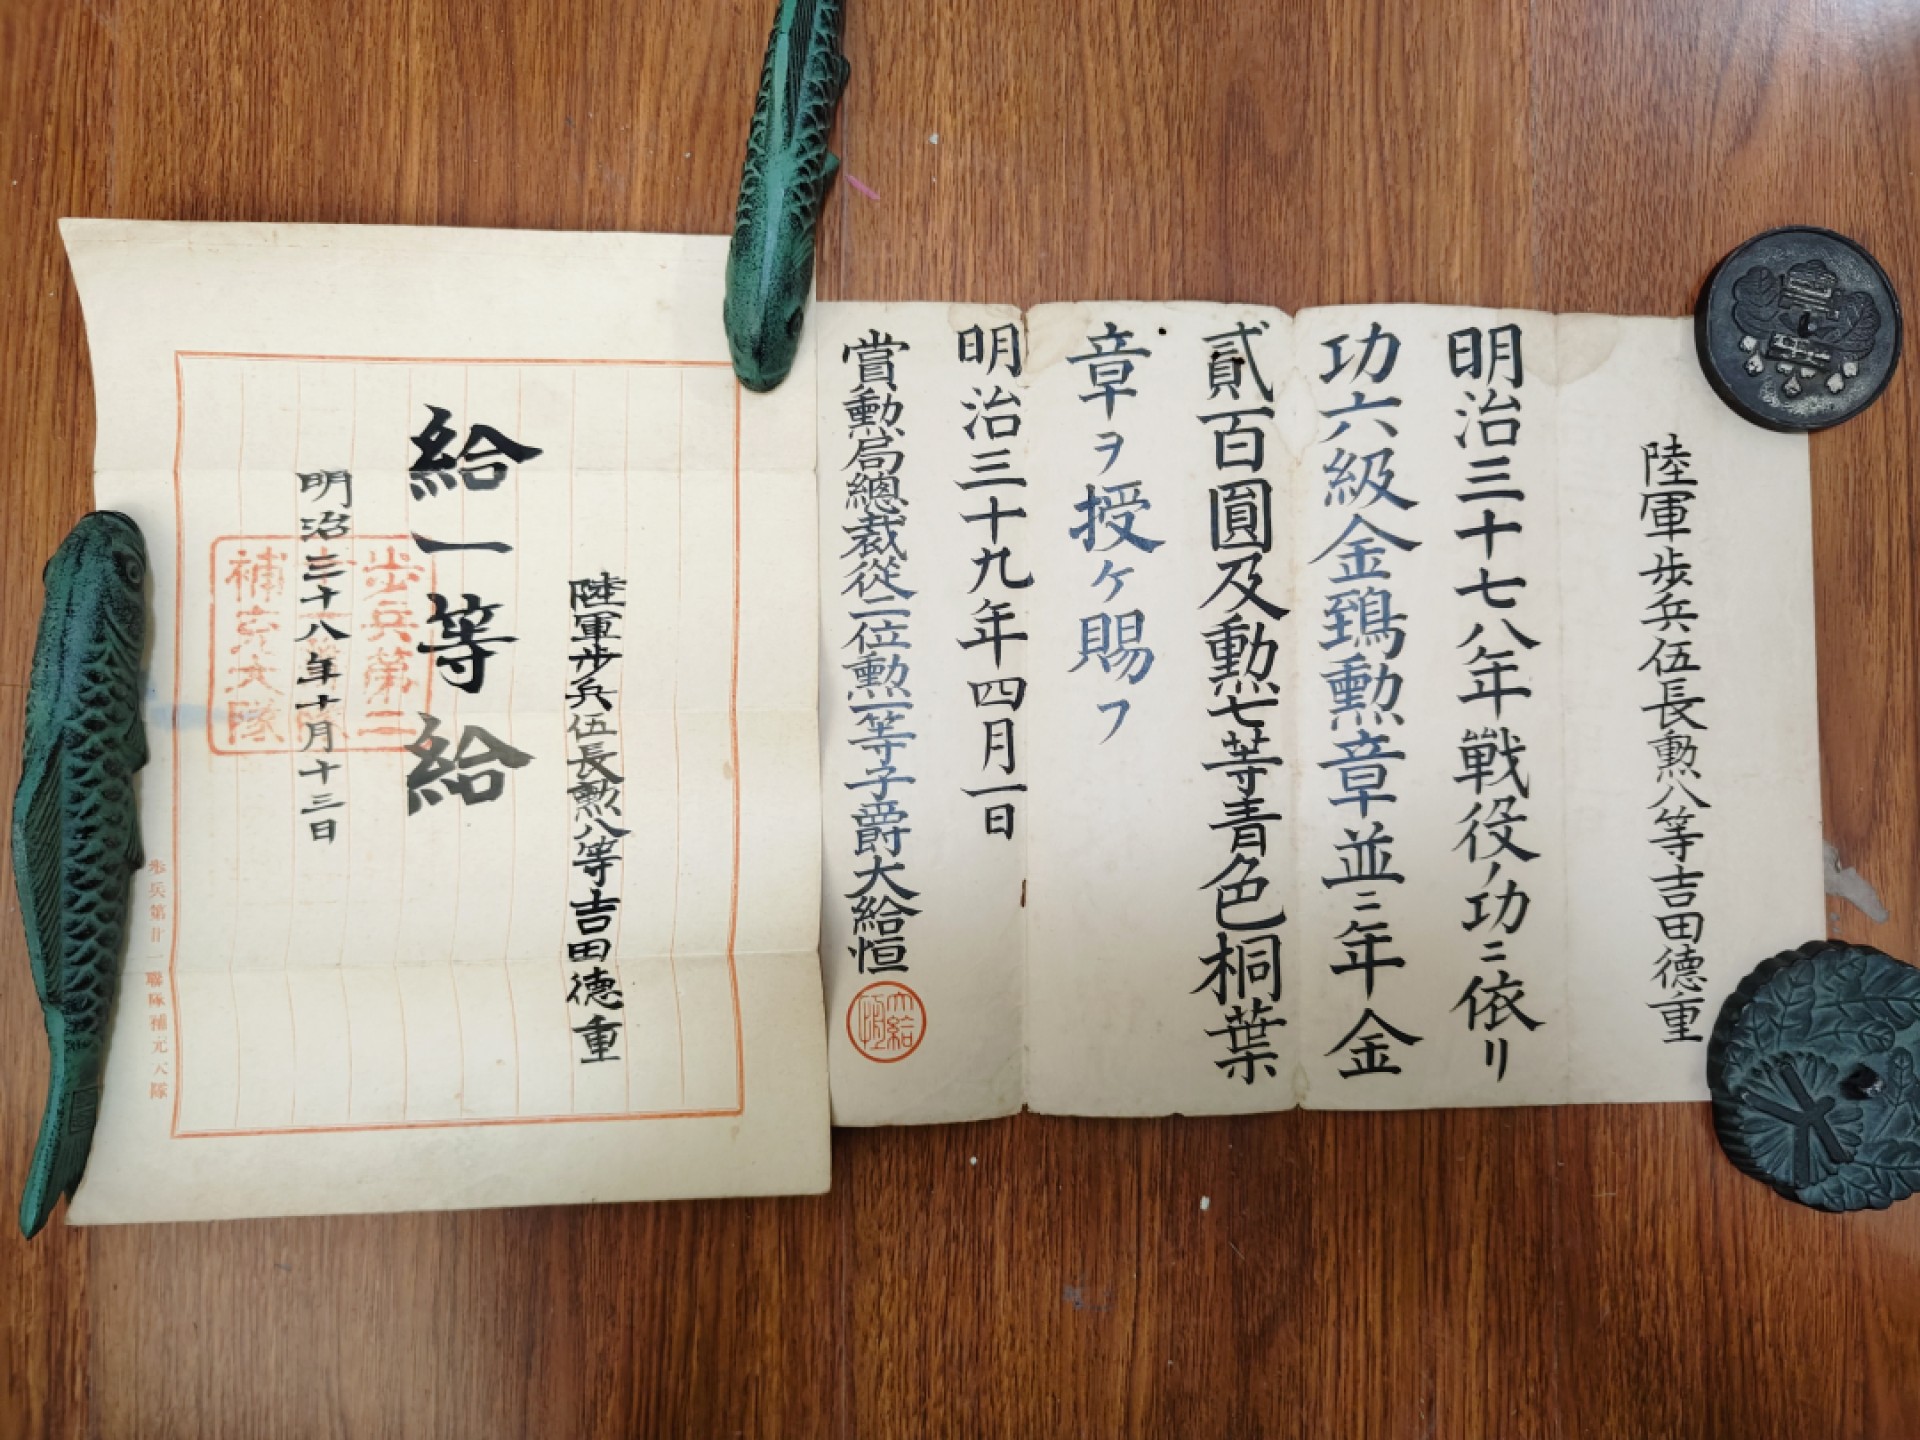 陸軍歩兵伍長勲八等吉田德重
明治三十七八年戰役ノ功ニ依リ
功六級金鵄勲章並ニ年金
貳百圓及勲七等青色桐葉
章ヲ授ケ賜フ
明治三十九年四月一日
賞勲局總裁從二位勲一等子爵大給恒
大給恒
陸軍歩兵伍長勲八等吉田德重
給一等給
明治三十八年十月十三日
歩兵第二
補充大隊
歩兵第廿一聯隊補充大隊